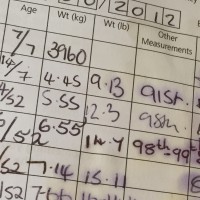 0/2012
Age Wt (kg) Wt (lb) Other Measurements
7/7 3960
14/7 4.45 9.13 91st.
/52 5.55 12.3 98th.
/52 6.55 14.4 98th-99th
/52 7.14 15.11
/52 7.66